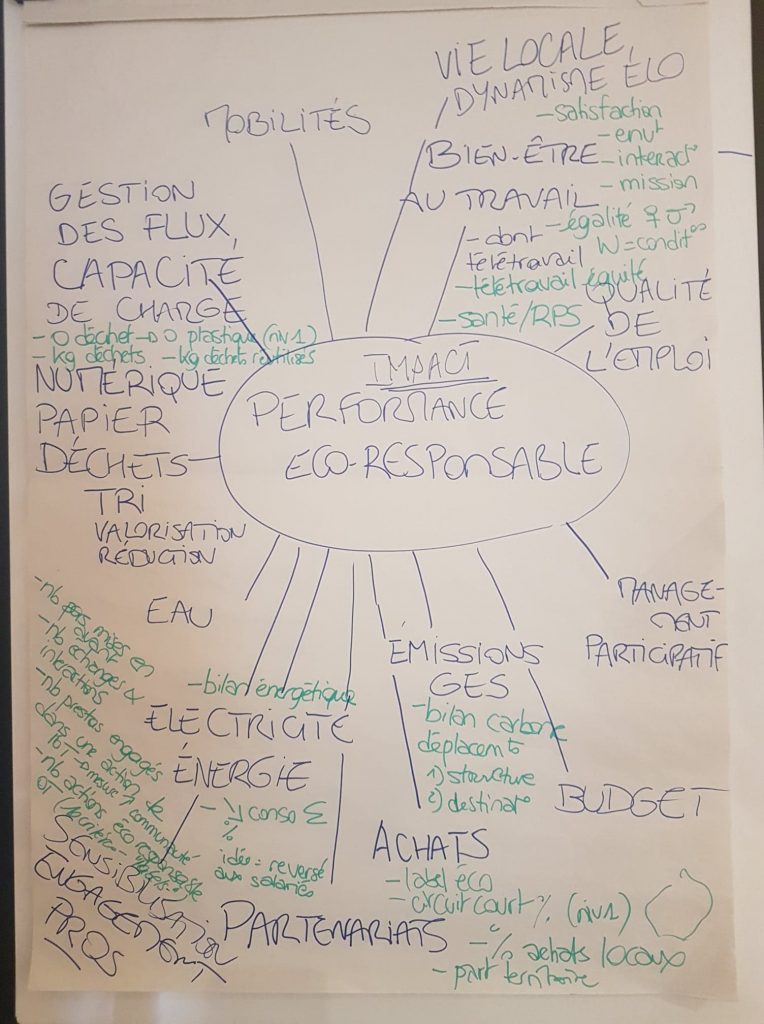 VIE LOCALE,
DYNAMISME ÉCO
MOBILITÉS
BIEN-ÊTRE
AU TRAVAIL
- dont
télétravail
- satisfaction
- envt
- interact°
- mission
- égalité ♀ ♂
W = condit°
- télétravail équité
- santé/RPS
QUALITÉ
DE
L'EMPLOI
GESTION
DES FLUX,
CAPACITÉ
DE CHARGE
- 0 déchet → 0 plastique (niv1)
- kg déchets - kg déchets réutilisés
NUMÉRIQUE
PAPIER
DÉCHETS
TRI
VALORISATION
RÉDUCTION
IMPACT
PERFORMANCE
ECO-RESPONSABLE
EAU
MANAGE-
MENT
PARTICIPATIF
ÉMISSIONS
GES
- bilan carbone
déplacemts
1) structure
2) destinat°
- bilan énergétique
ÉLECTRICITÉ
ÉNERGIE
- ↘ conso Σ
%
idée = reversé
aux salariés
BUDGET
ACHATS
- label éco
- circuit court % (niv1)
- % achats locaux
- part territoire
PARTENARIATS
- nb pros mises en
avant
- nb échanges &
interactions
- nb prestas engagés
dans une action de
- nb actions éco responsable
OT
SENSIBILISATION
ENGAGEMENT
PROS